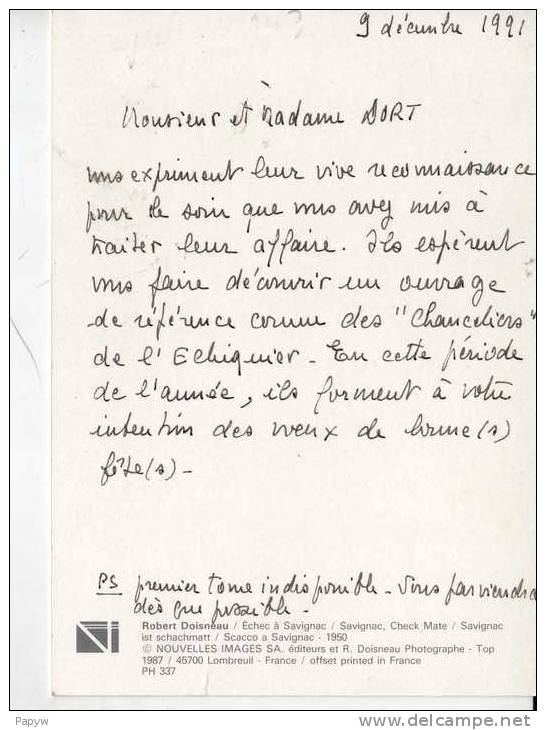 9 décembre 1991
Monsieur et Madame DORT
vous expriment leur vive reconnaissance
pour le soin que vous avez mis à
traiter leur affaire. Ils espèrent
vous faire découvrir un ouvrage
de référence connu des "Chanceliers"
de l'Echiquier - En cette période
de l'année, ils forment à votre
intention des voeux de bonne(s)
fête(s) -
PS premier tome indisponible - Vous parviendra
dès que possible -
Robert Doisneau / Échec à Savignac / Savignac, Check Mate / Savignac
ist schachmatt / Scacco a Savignac - 1950
© NOUVELLES IMAGES SA. éditeurs et R. Doisneau Photographe - Top
1987 / 45700 Lombreuil - France / offset printed in France
PH 337
Papyw
www.delcampe.net